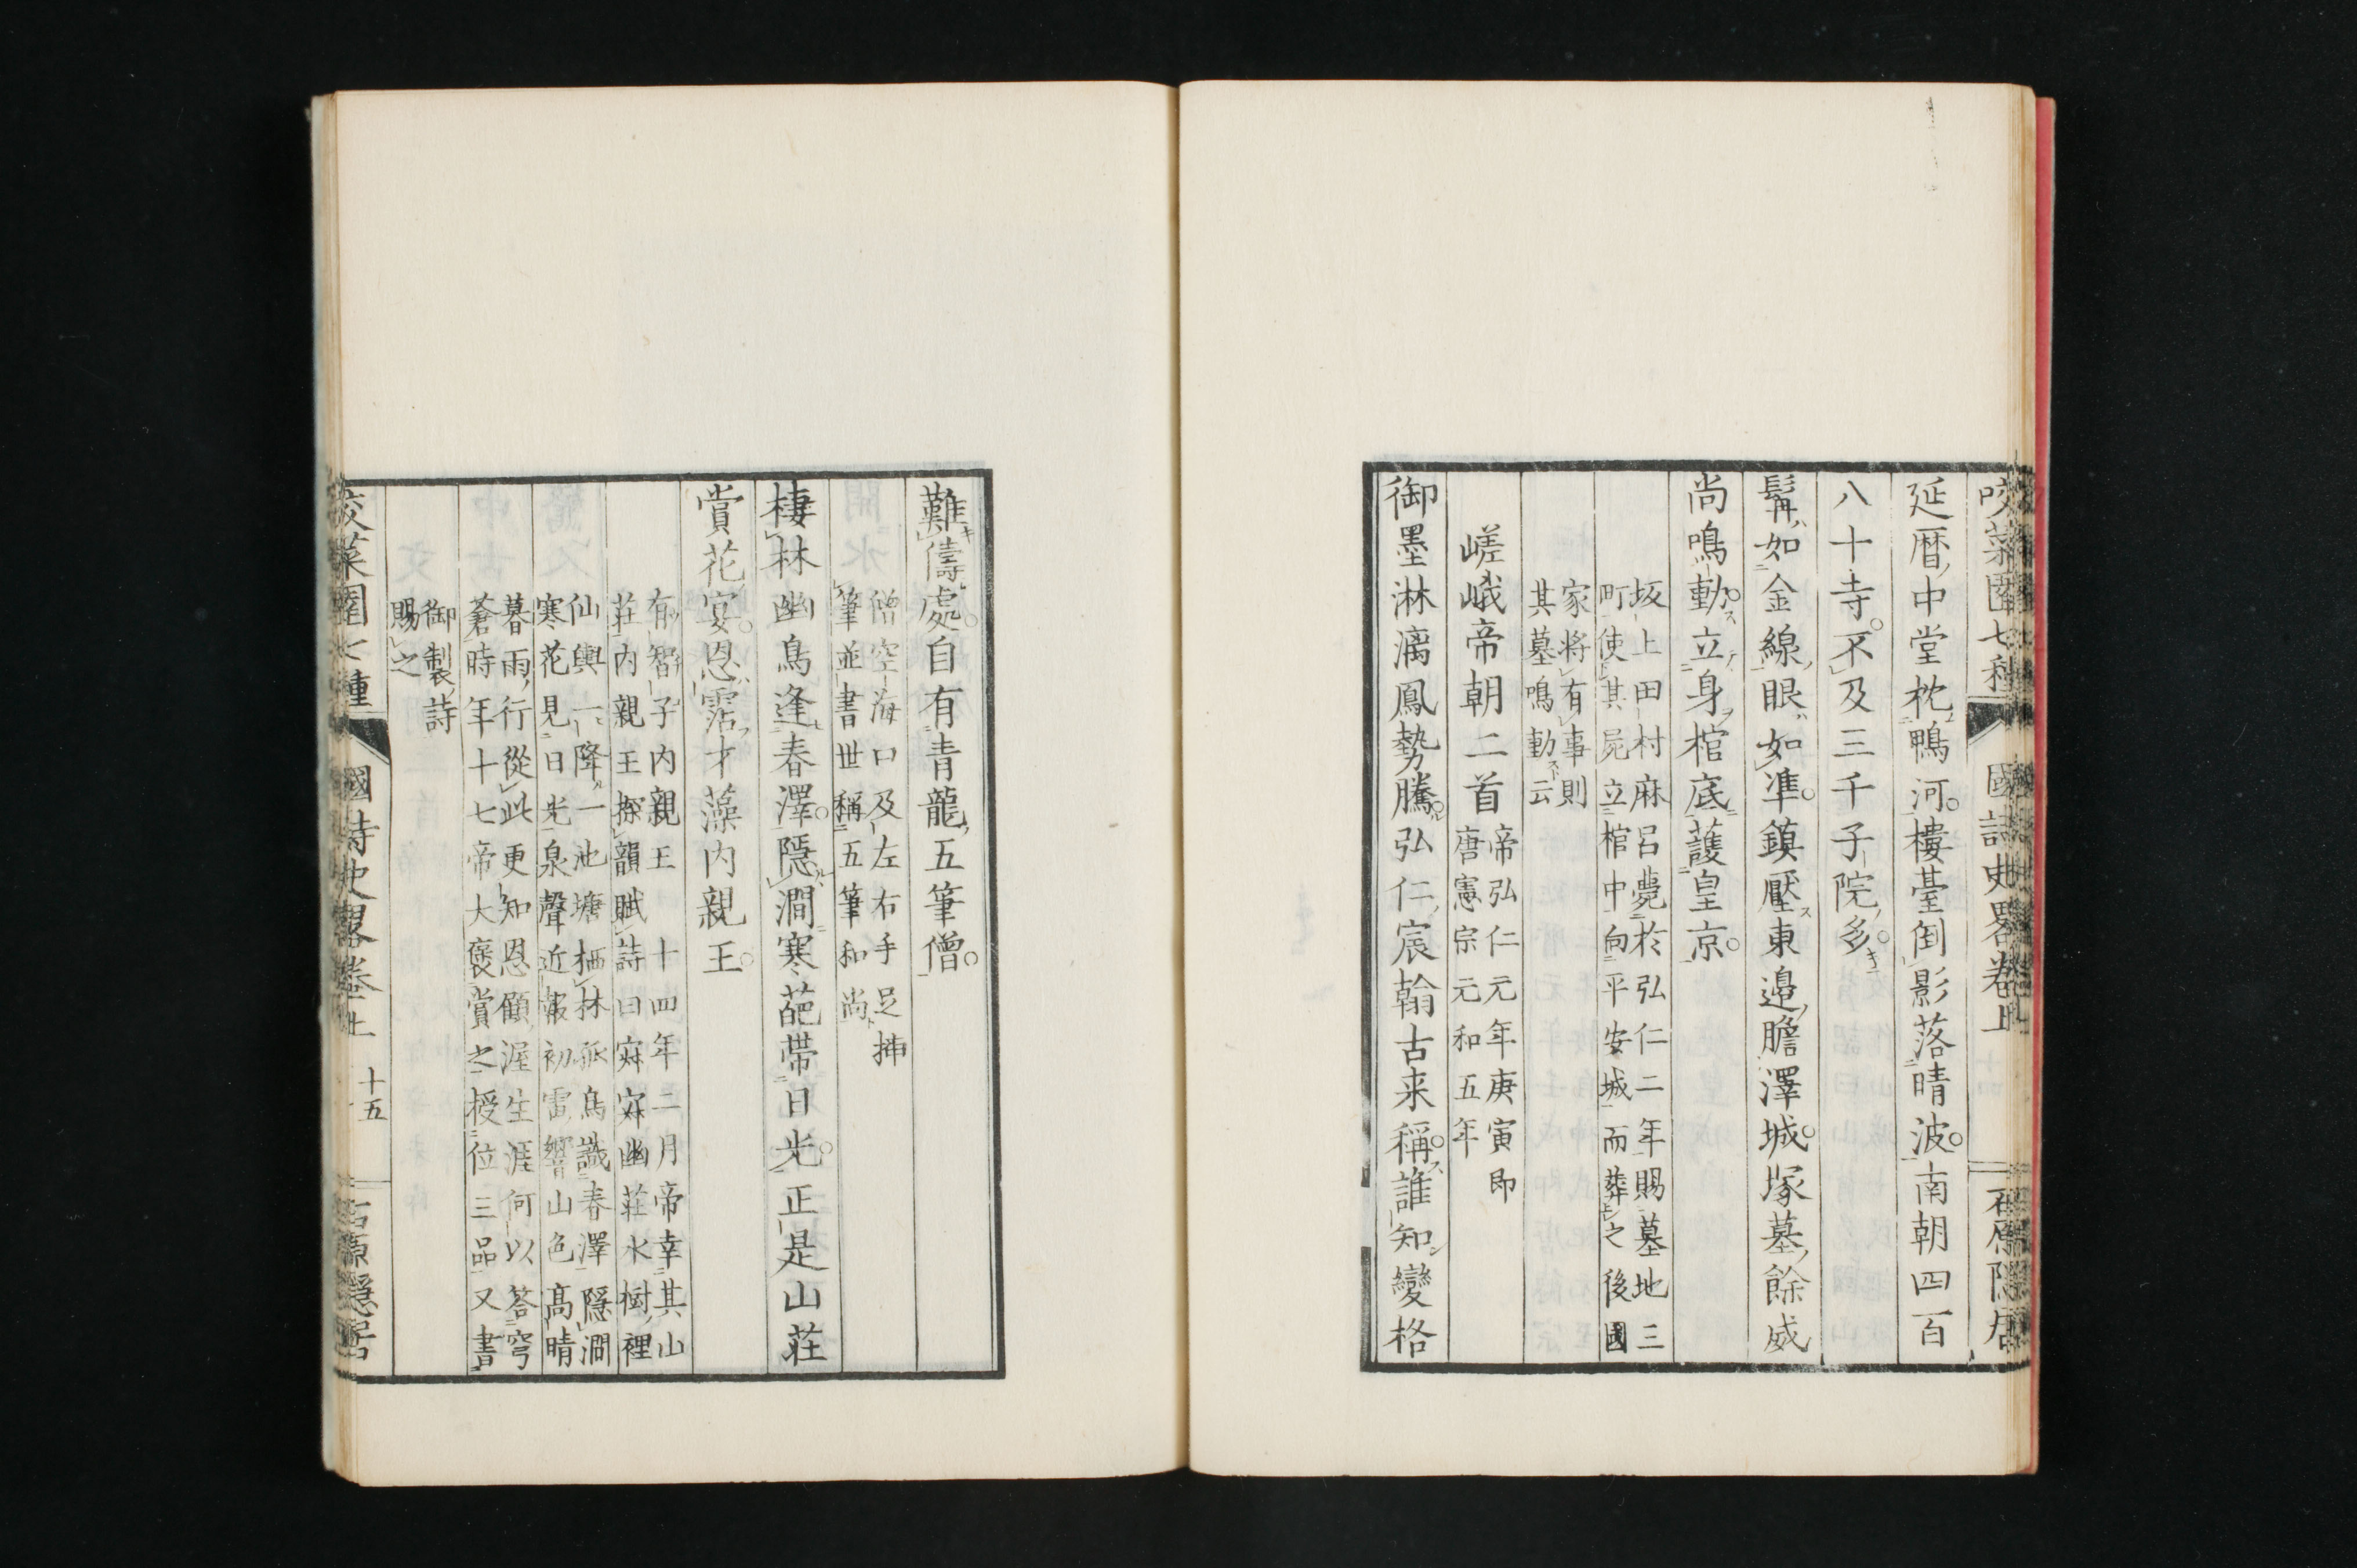 咬菜園七種 國詩史畧卷上 石原隱居
延暦中堂枕鴨河樓臺倒影落晴波南朝四百
八十寺不及三千子院多
髯如金線眼如準鎮壓東邊膽澤城塚墓餘威
尚鳴動立身棺底護皇京
坂上田村麻呂薨於弘仁二年賜墓地三
町使其屍立棺中向平安城而葬之後國
家将有事則
其墓鳴動云
嵯峨帝朝二首
帝弘仁元年庚寅即
唐憲宗元和五年
御墨淋漓鳳勢騰弘仁宸翰古来稱誰知變格
難儔處自有青龍五筆僧
僧空海口及左右手足挿
筆並書世稱五筆和尚
棲林幽鳥逢春澤隱澗寒葩帶日光正是山莊
賞花宴恩霑才藻内親王
有智子内親王 十四年二月帝幸其山
莊内親王探韻賦詩曰寂寂幽莊水樹裡
仙輿一降一池塘栖林孤鳥識春澤隱澗
寒花見日光泉聲近報初雷響山色高晴
暮雨行從此更知恩顧渥生涯何以答穹
蒼時年十七帝大褒賞之授位三品又書
御製詩
賜之
咬菜園七種 國詩史畧卷上 十五 石原隱居